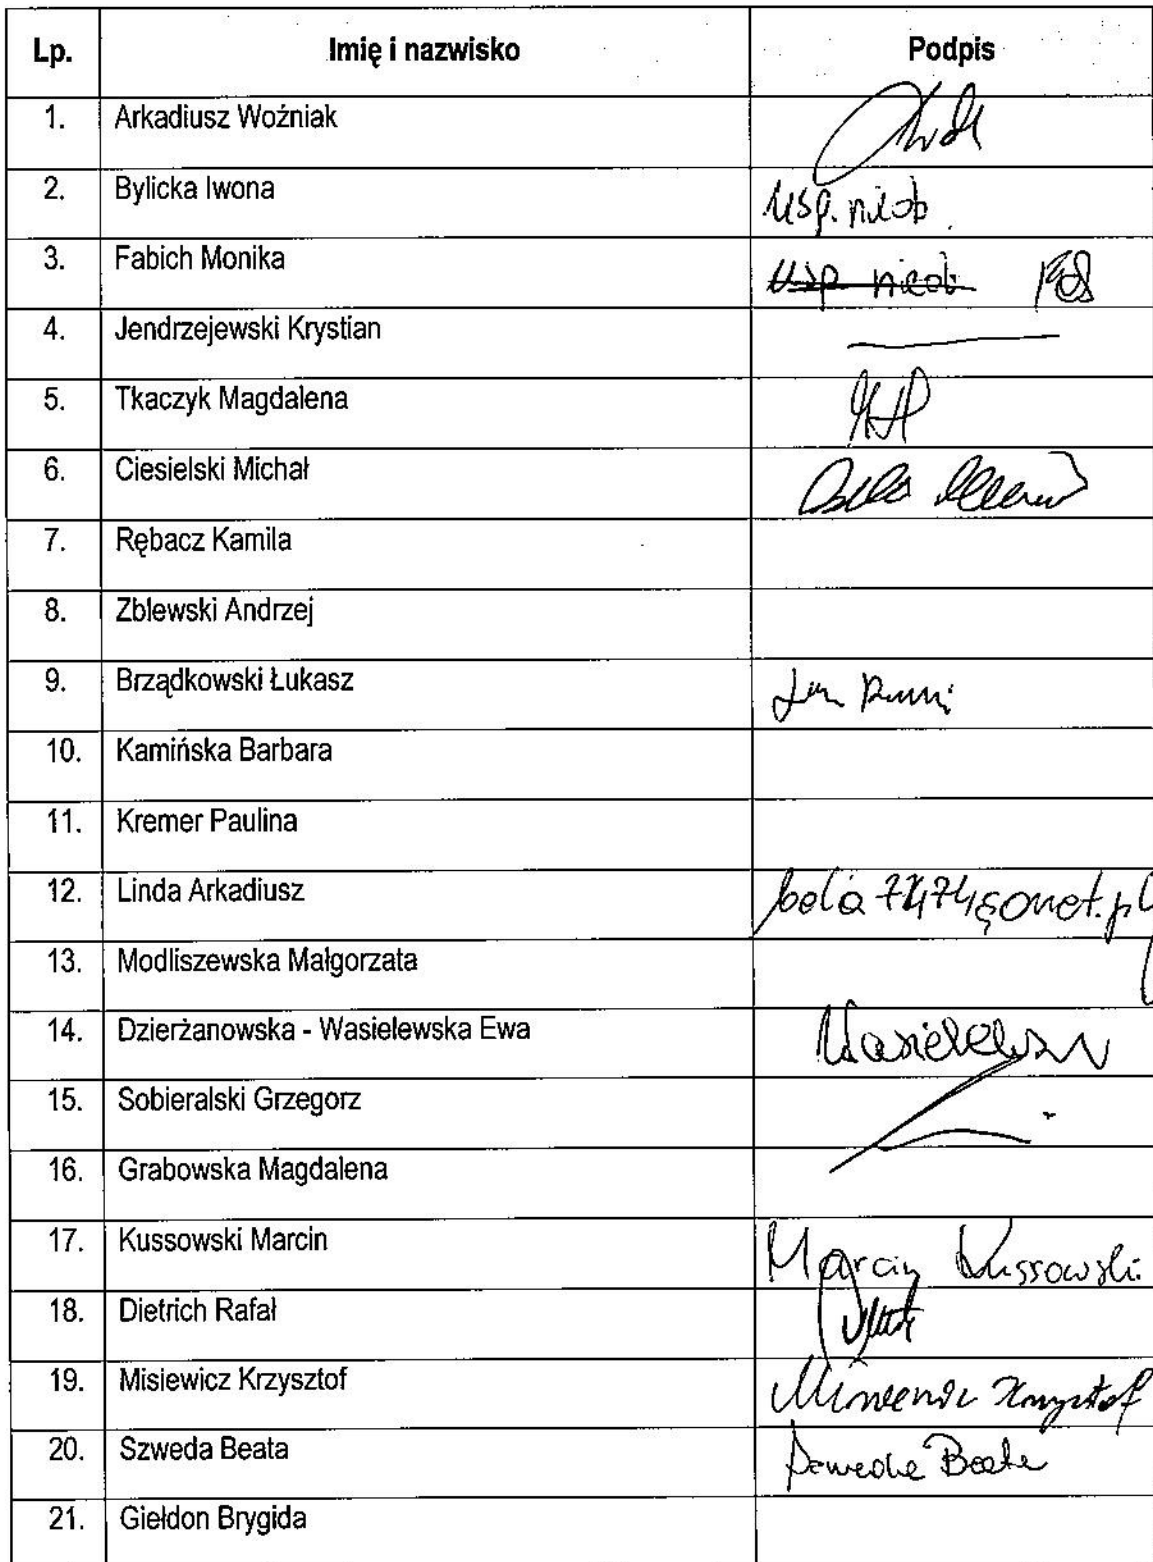 Lp. Imię i nazwisko Podpis
1. Arkadiusz Woźniak
2. Bylicka Iwona usp. nieob.
3. Fabich Monika usp nieob
4. Jendrzejewski Krystian
5. Tkaczyk Magdalena
6. Ciesielski Michał
7. Rębacz Kamila
8. Zblewski Andrzej
9. Brządkowski Łukasz
10. Kamińska Barbara
11. Kremer Paulina
12. Linda Arkadiusz
13. Modliszewska Małgorzata
14. Dzierżanowska - Wasielewska Ewa
15. Sobieralski Grzegorz
16. Grabowska Magdalena
17. Kussowski Marcin Marcin Kussowski
18. Dietrich Rafał
19. Misiewicz Krzysztof Misiewicz Krzysztof
20. Szweda Beata Szweda Beata
21. Giełdon Brygida